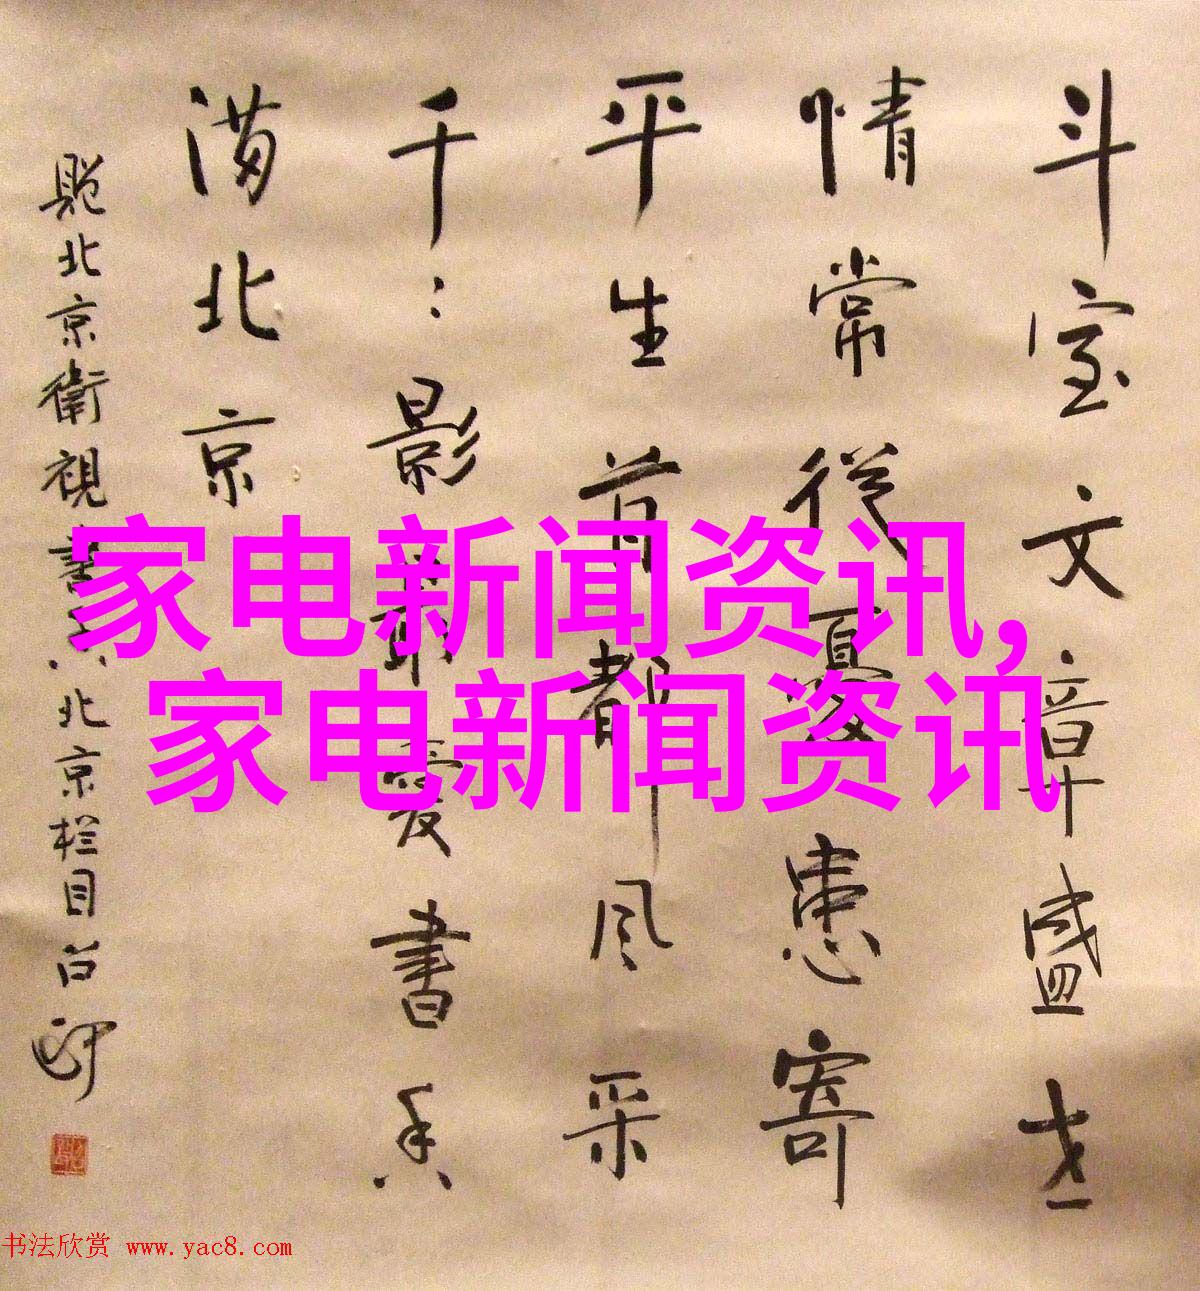 斗室文章盛世
情常從憂患寄
平生首都风采
千:影最愛書香
满北京
題北京衛視書香北京栏目
家电新闻资讯,
家电新闻资讯
书法欣赏 www.yac8.com